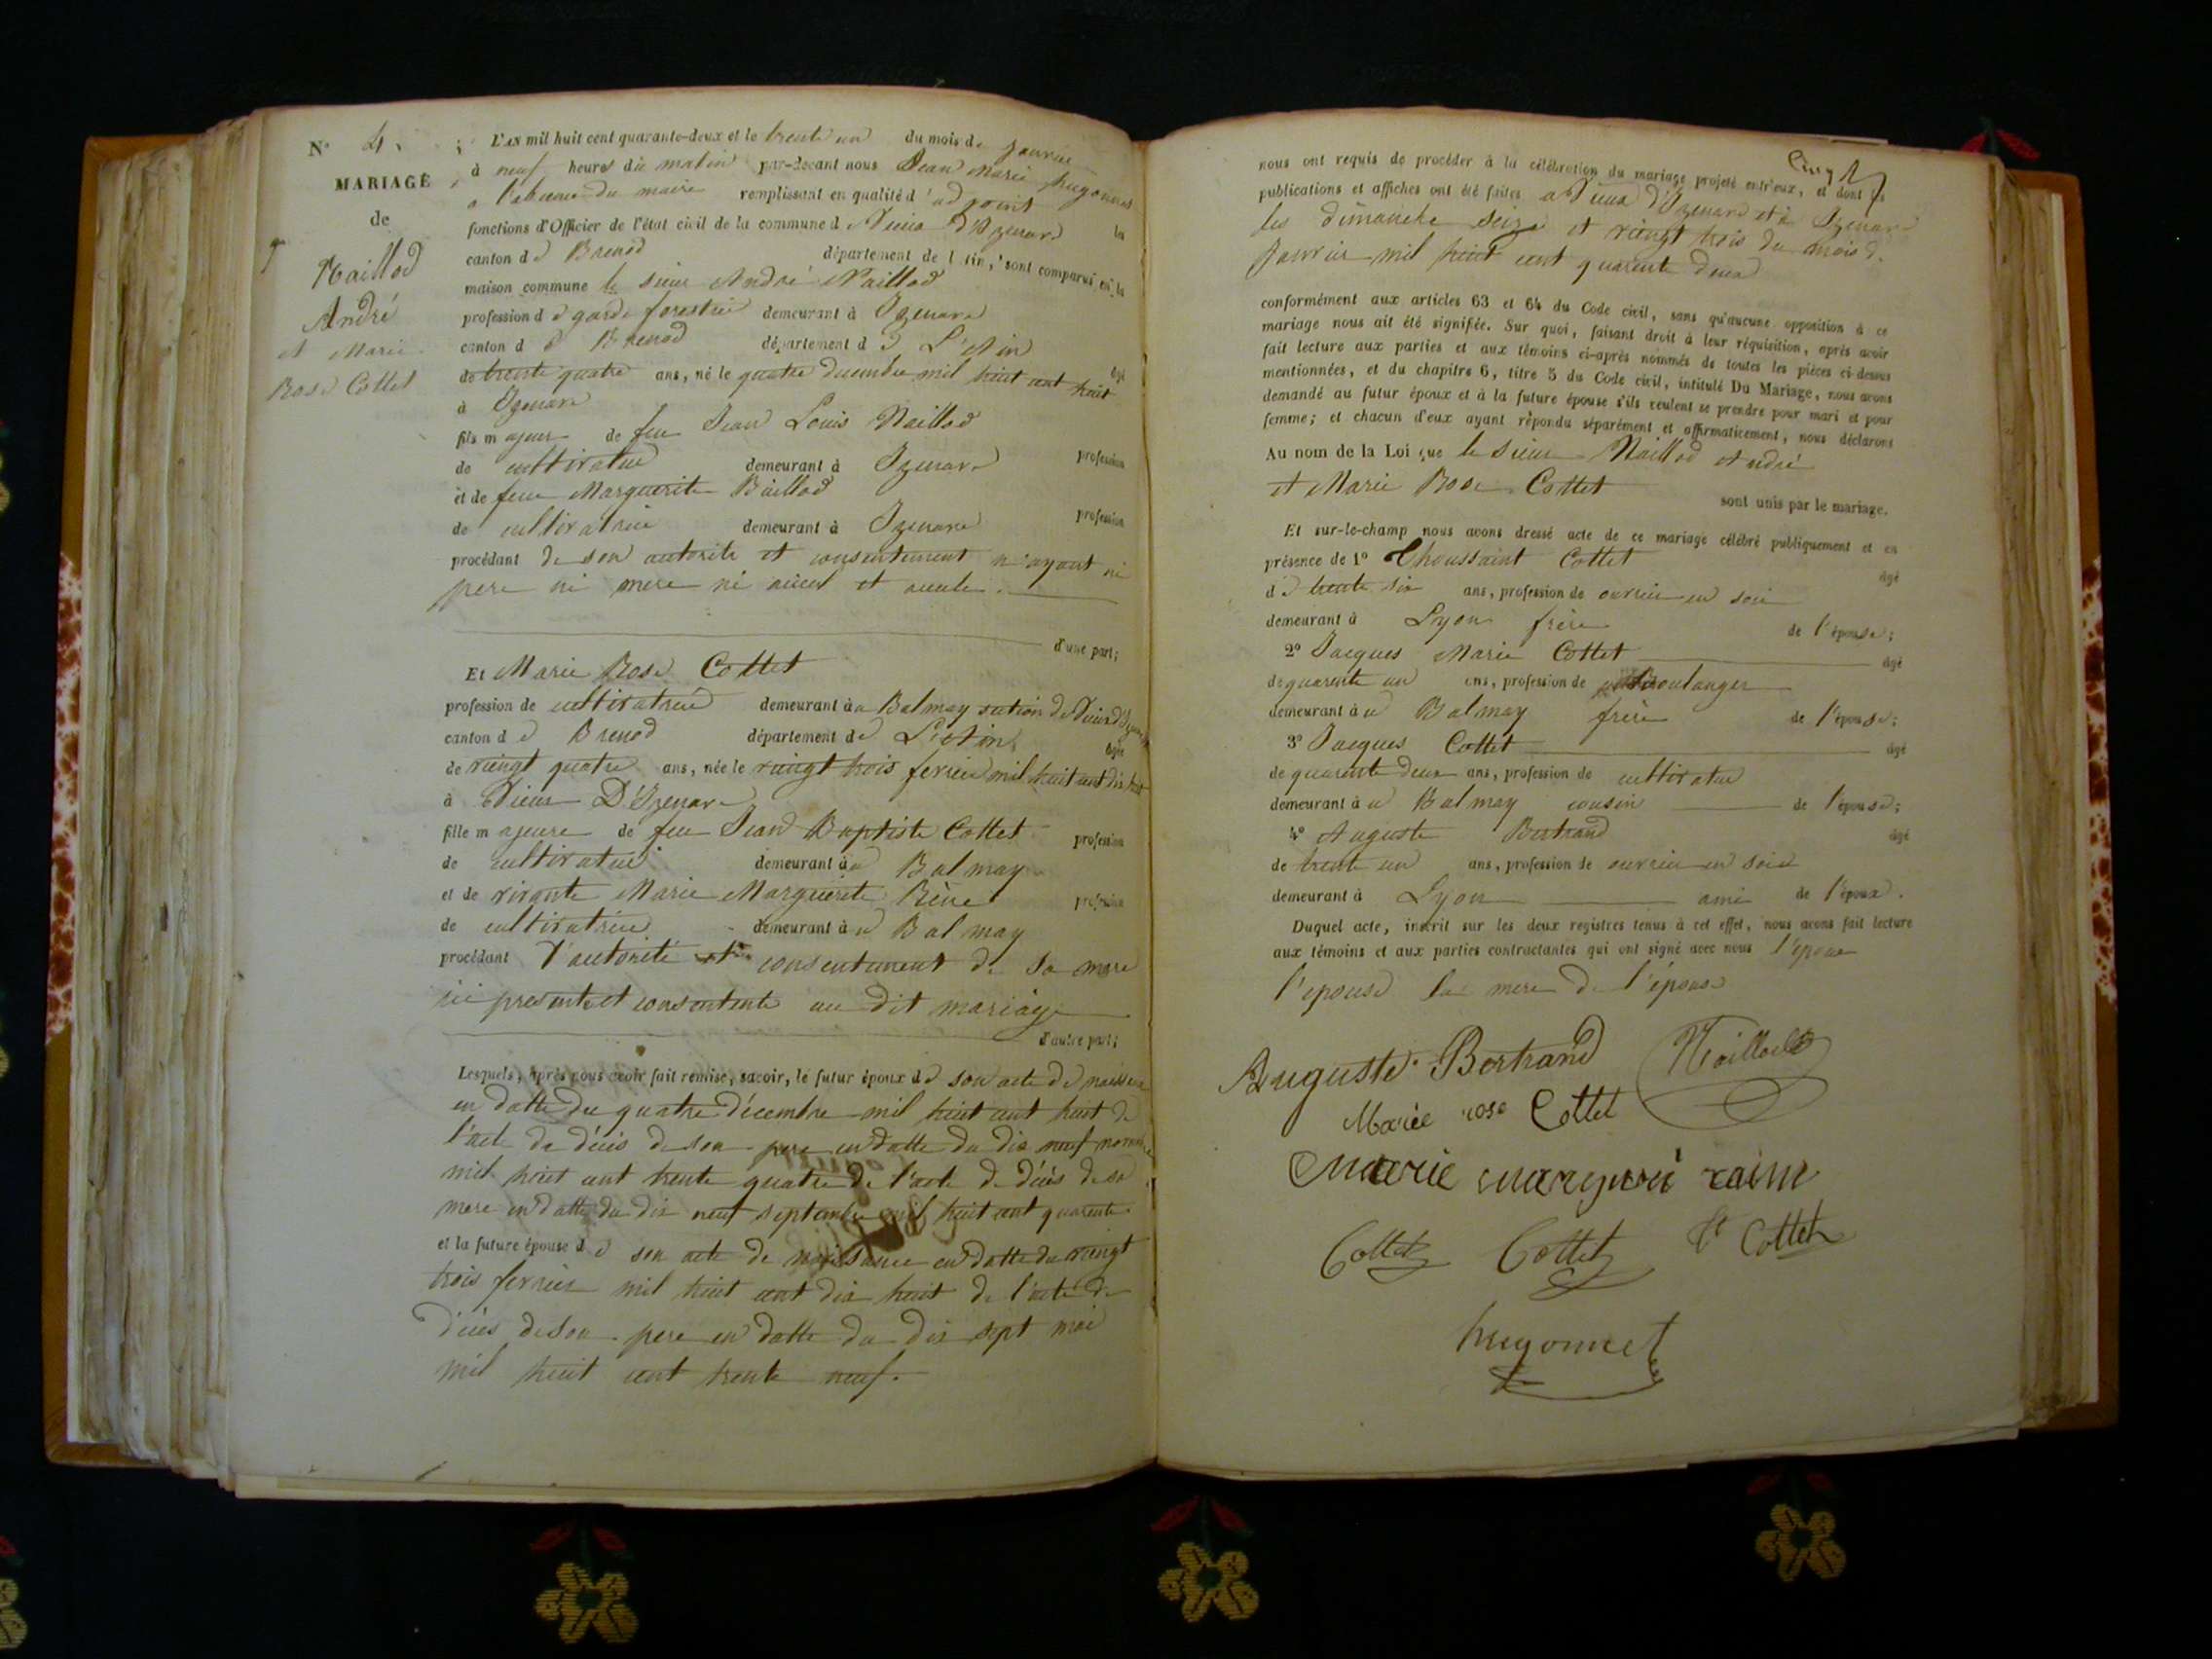 N° 4.
MARIAGE
de
Naillod
André
et Marie
Rose Cottet
L'AN mil huit cent quarante-deux et le trente un du mois de janvier
à neuf heures du matin par-devant nous Jean Marie hugonnet
a l'absence du maire remplissant en qualité d'adjoint la
fonctions d'Officier de l'état civil de la commune de Vieux d'Izenave
canton de Brenod département de l'Ain, sont comparus en la
maison commune le sieur André Naillod
profession de garde forestier demeurant à Izenave
canton de Brenod département de L'Ain âgé
de trente quatre ans, né le quatre decembre mil huit cent huit
à Izenave
fils majeur de feu Jean Louis Naillod profession
de cultivateur demeurant à Izenave
et de feue Marguerite Baillod profession
de cultivatrice demeurant à Izenave
procédant de son autorite et consentement n'ayant ni
pere ni mere ni aieul et aieule.
d'une part;
Et Marie Rose Cottet
profession de cultivatrice demeurant à a Balmay section de Vieux d'Izenave
canton de Brenod département de L'Ain âgée
de vingt quatre ans, née le vingt trois fevrier mil huit cent dix huit
à Vieux D'Izenave
fille majeure de feu Jean Baptiste Cottet profession
de cultivateur demeurant à a Balmay
et de vivante Marie Marguerite Rène profession
de cultivatrice demeurant à a Balmay
procédant l'autorité et consentement de sa mere
ici presente et consentente au dit mariage
d'autre part;
Lesquels, après nous avoir fait remise, savoir, le futur époux de son acte de naissance
en datte du quatre décembre mil huit cent huit de
l'acte de décis de son pere en datte du dix neuf novembre
mil huit cent trente quatre de l'acte de décis de sa
mere en datte du dix neuf septembre mil huit cent quarente
et la future épouse de son acte de naissance en datte du vingt
trois fevrier mil huit cent dix huit de l'acte de
décès de son pere en datte du dix sept mai
mil huit cent trente neuf.
nous ont requis de procéder à la célébration du mariage projeté entr'eux, et dont les
publications et affiches ont été faites a Vieux d'Izenave et à Izenave
les dimanche seize et vingt trois du mois d.
Janvier mil huit cent quarente deux
conformément aux articles 63 et 64 du Code civil, sans qu'aucune opposition à ce
mariage nous ait été signifiée. Sur quoi, faisant droit à leur réquisition, après avoir
fait lecture aux parties et aux témoins ci-après nommés de toutes les pièces ci-dessus
mentionnées, et du chapitre 6, titre 5 du Code civil, intitulé Du Mariage, nous avons
demandé au futur époux et à la future épouse s'ils veulent se prendre pour mari et pour
femme; et chacun d'eux ayant répondu séparément et affirmativement, nous déclarons
Au nom de la Loi que le sieur Naillod André
et Marie Rose Cottet
sont unis par le mariage.
Et sur-le-champ nous avons dressé acte de ce mariage célébré publiquement et en
présence de 1° Thoussaint Cottet âgé
de trente six ans, profession de ouvrier en soie
demeurant à Lyon frère de l'épouse;
2° Jacques Marie Cottet âgé
de quarente un ans, profession de boulanger
demeurant à a Balmay frère de l'épouse;
3° Jacques Cottet âgé
de quarente deux ans, profession de cultivateur
demeurant à a Balmay cousin de l'épouse;
4° Auguste Bertrand âgé
de trente un ans, profession de ouvrier en soie
demeurant à Lyon ami de l'époux.
Duquel acte, inscrit sur les deux registres tenus à cet effet, nous avons fait lecture
aux témoins et aux parties contractantes qui ont signé avec nous l'époux
l'epouse la mere de l'épouse
Auguste Bertrand Naillod
Marie rose Cottet
Marie marguri raine
Cottet Cottet Ct Cottet
hugonnet